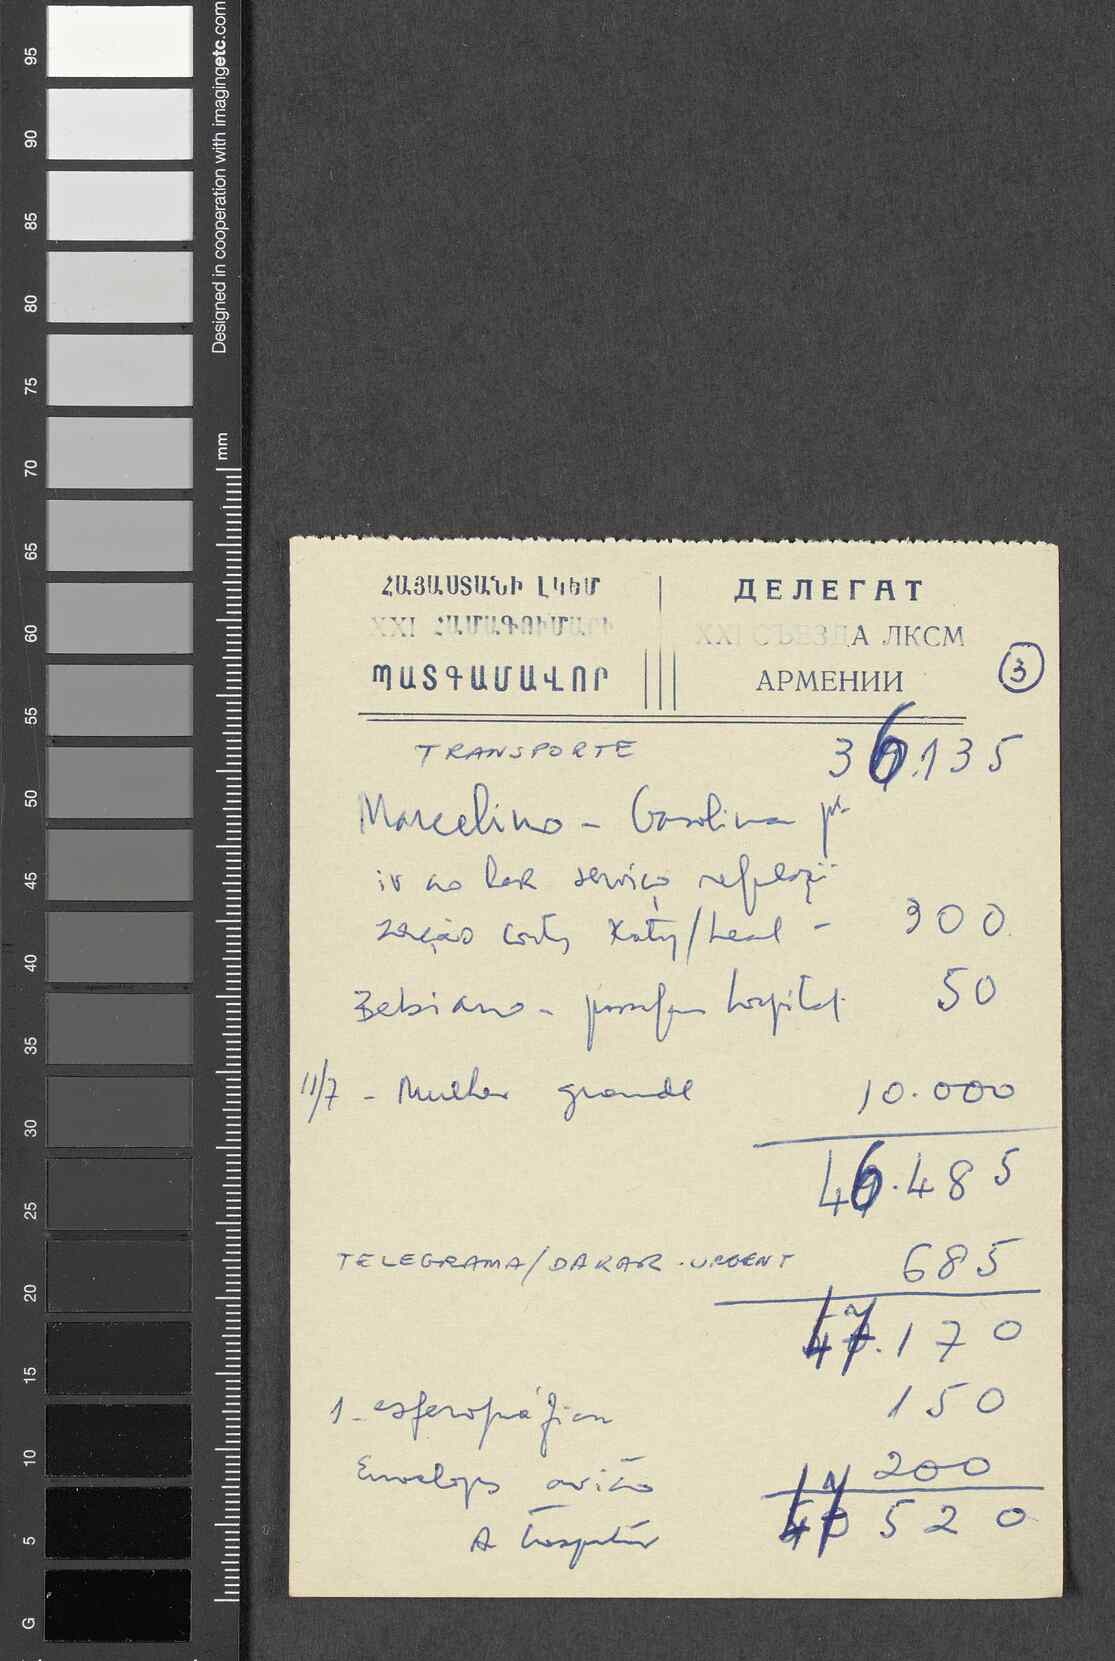 ՀԱՅԱՍՏԱՆԻ ԼԿԵՄ
XXI ՀԱՄԱԳՈՒՄԱՐԻ
ՊԱՏԳԱՄԱՎՈՐ
ДЕЛЕГАТ
XXI СЪЕЗДА ЛКСМ
АРМЕНИИ
3
TRANSPORTE 36.135
Marcelino - Gasolina pª
ir ao serviço
/Leal - 300
Bebiano - hospital 50
11/7 - Mulher grande 10.000
46.485
TELEGRAMA/DAKAR - URGENT 685
47.170
1 - esferográfica 150
Envelops avião 200
A 47 520
95
90
85
80
75
70
65
60
55
50
45
40
35
30
25
20
15
10
5
G
Designed in cooperation with imagingetc.com
mm